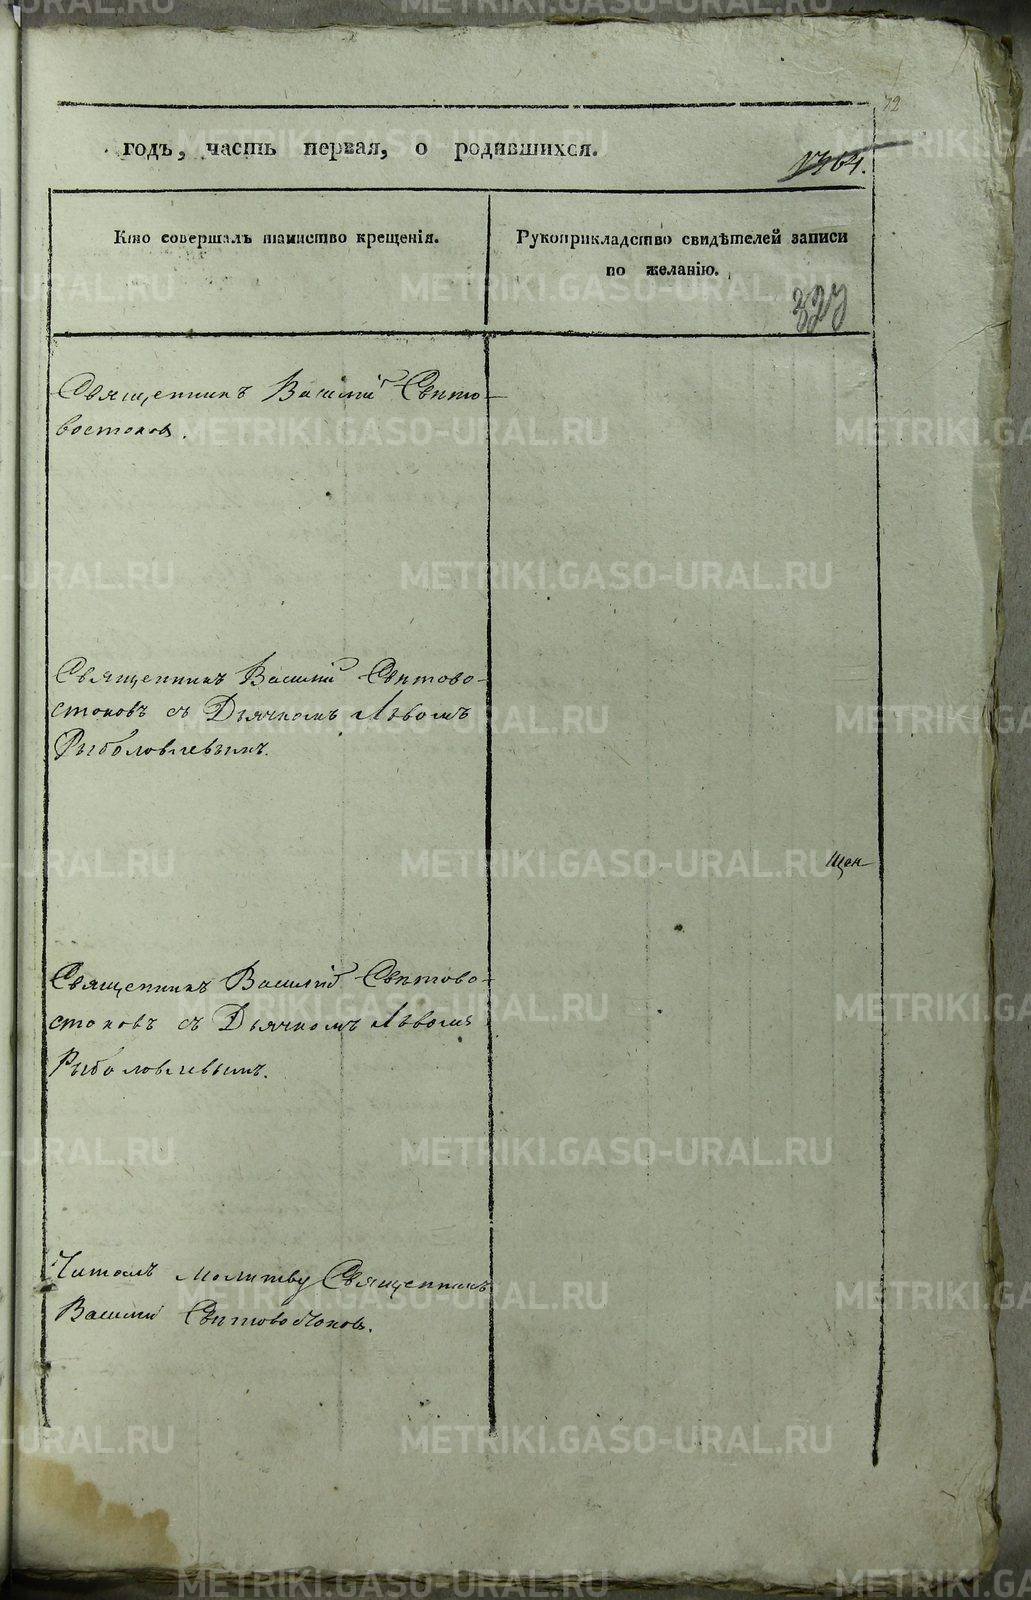 72
годъ, часть первая, о родившихся.
Кто совершалъ таинство крещенія.
Рукоприкладство свидѣтелей записи
по желанію.
327
Священникъ Василій Свѣто-
востоковъ.
Священникъ Василій Свѣтово-
стоковъ съ Дьячкомъ Львомъ
Рыболовлевымъ.
Священникъ Василій Свѣтово-
стоковъ съ Дьячкомъ Львомъ
Рыболовлевымъ.
Читалъ молитву Священникъ
Василій Свѣтовостоковъ.
METRIKI.GASO-URAL.RU